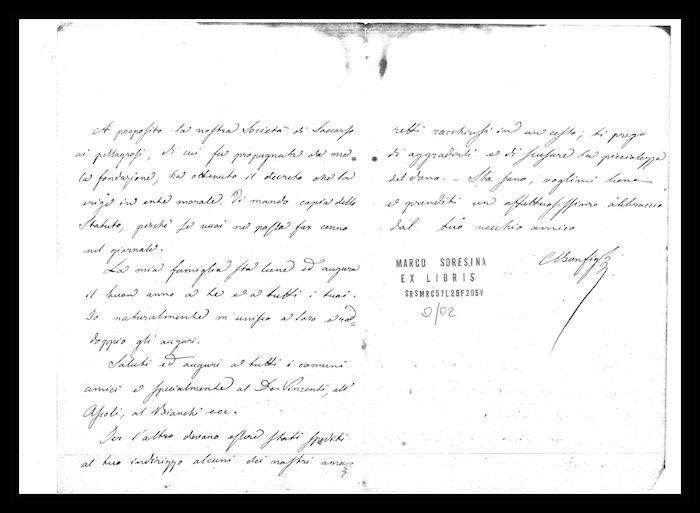 A proposito la nostra Società di Soccorso
ai pellagrosi, di cui fu propugnata da me
la fondazione, ha ottenuto il decreto che la
erige in ente morale. Ti mando copia dello
Statuto, perchè se vuoi ne possa far cenno
nel giornale.
La mia famiglia sta bene ed augura
il buon anno a te e a tutti i tuoi.
Io naturalmente m'unisco a loro e rad=
doppio gli auguri.
Saluti ed auguri a tutti i comuni
amici e specialmente al De Vincenti, all'
Ascoli, al Bianchi ecc.
Per l'altro devono essere stati spediti
al tuo indirizzo alcuni dei nostri ama
retti racchiusi in un cesto; ti prego
di aggradirli e di scusare la piccolezza
del dono. – Sta sano, voglimi bene
e prenditi un affettuosissimo abbraccio
dal tuo vecchio amico
CBonfigli
MARCO SORESINA
EX LIBRIS
SRSMRC57L25F205V
9/02